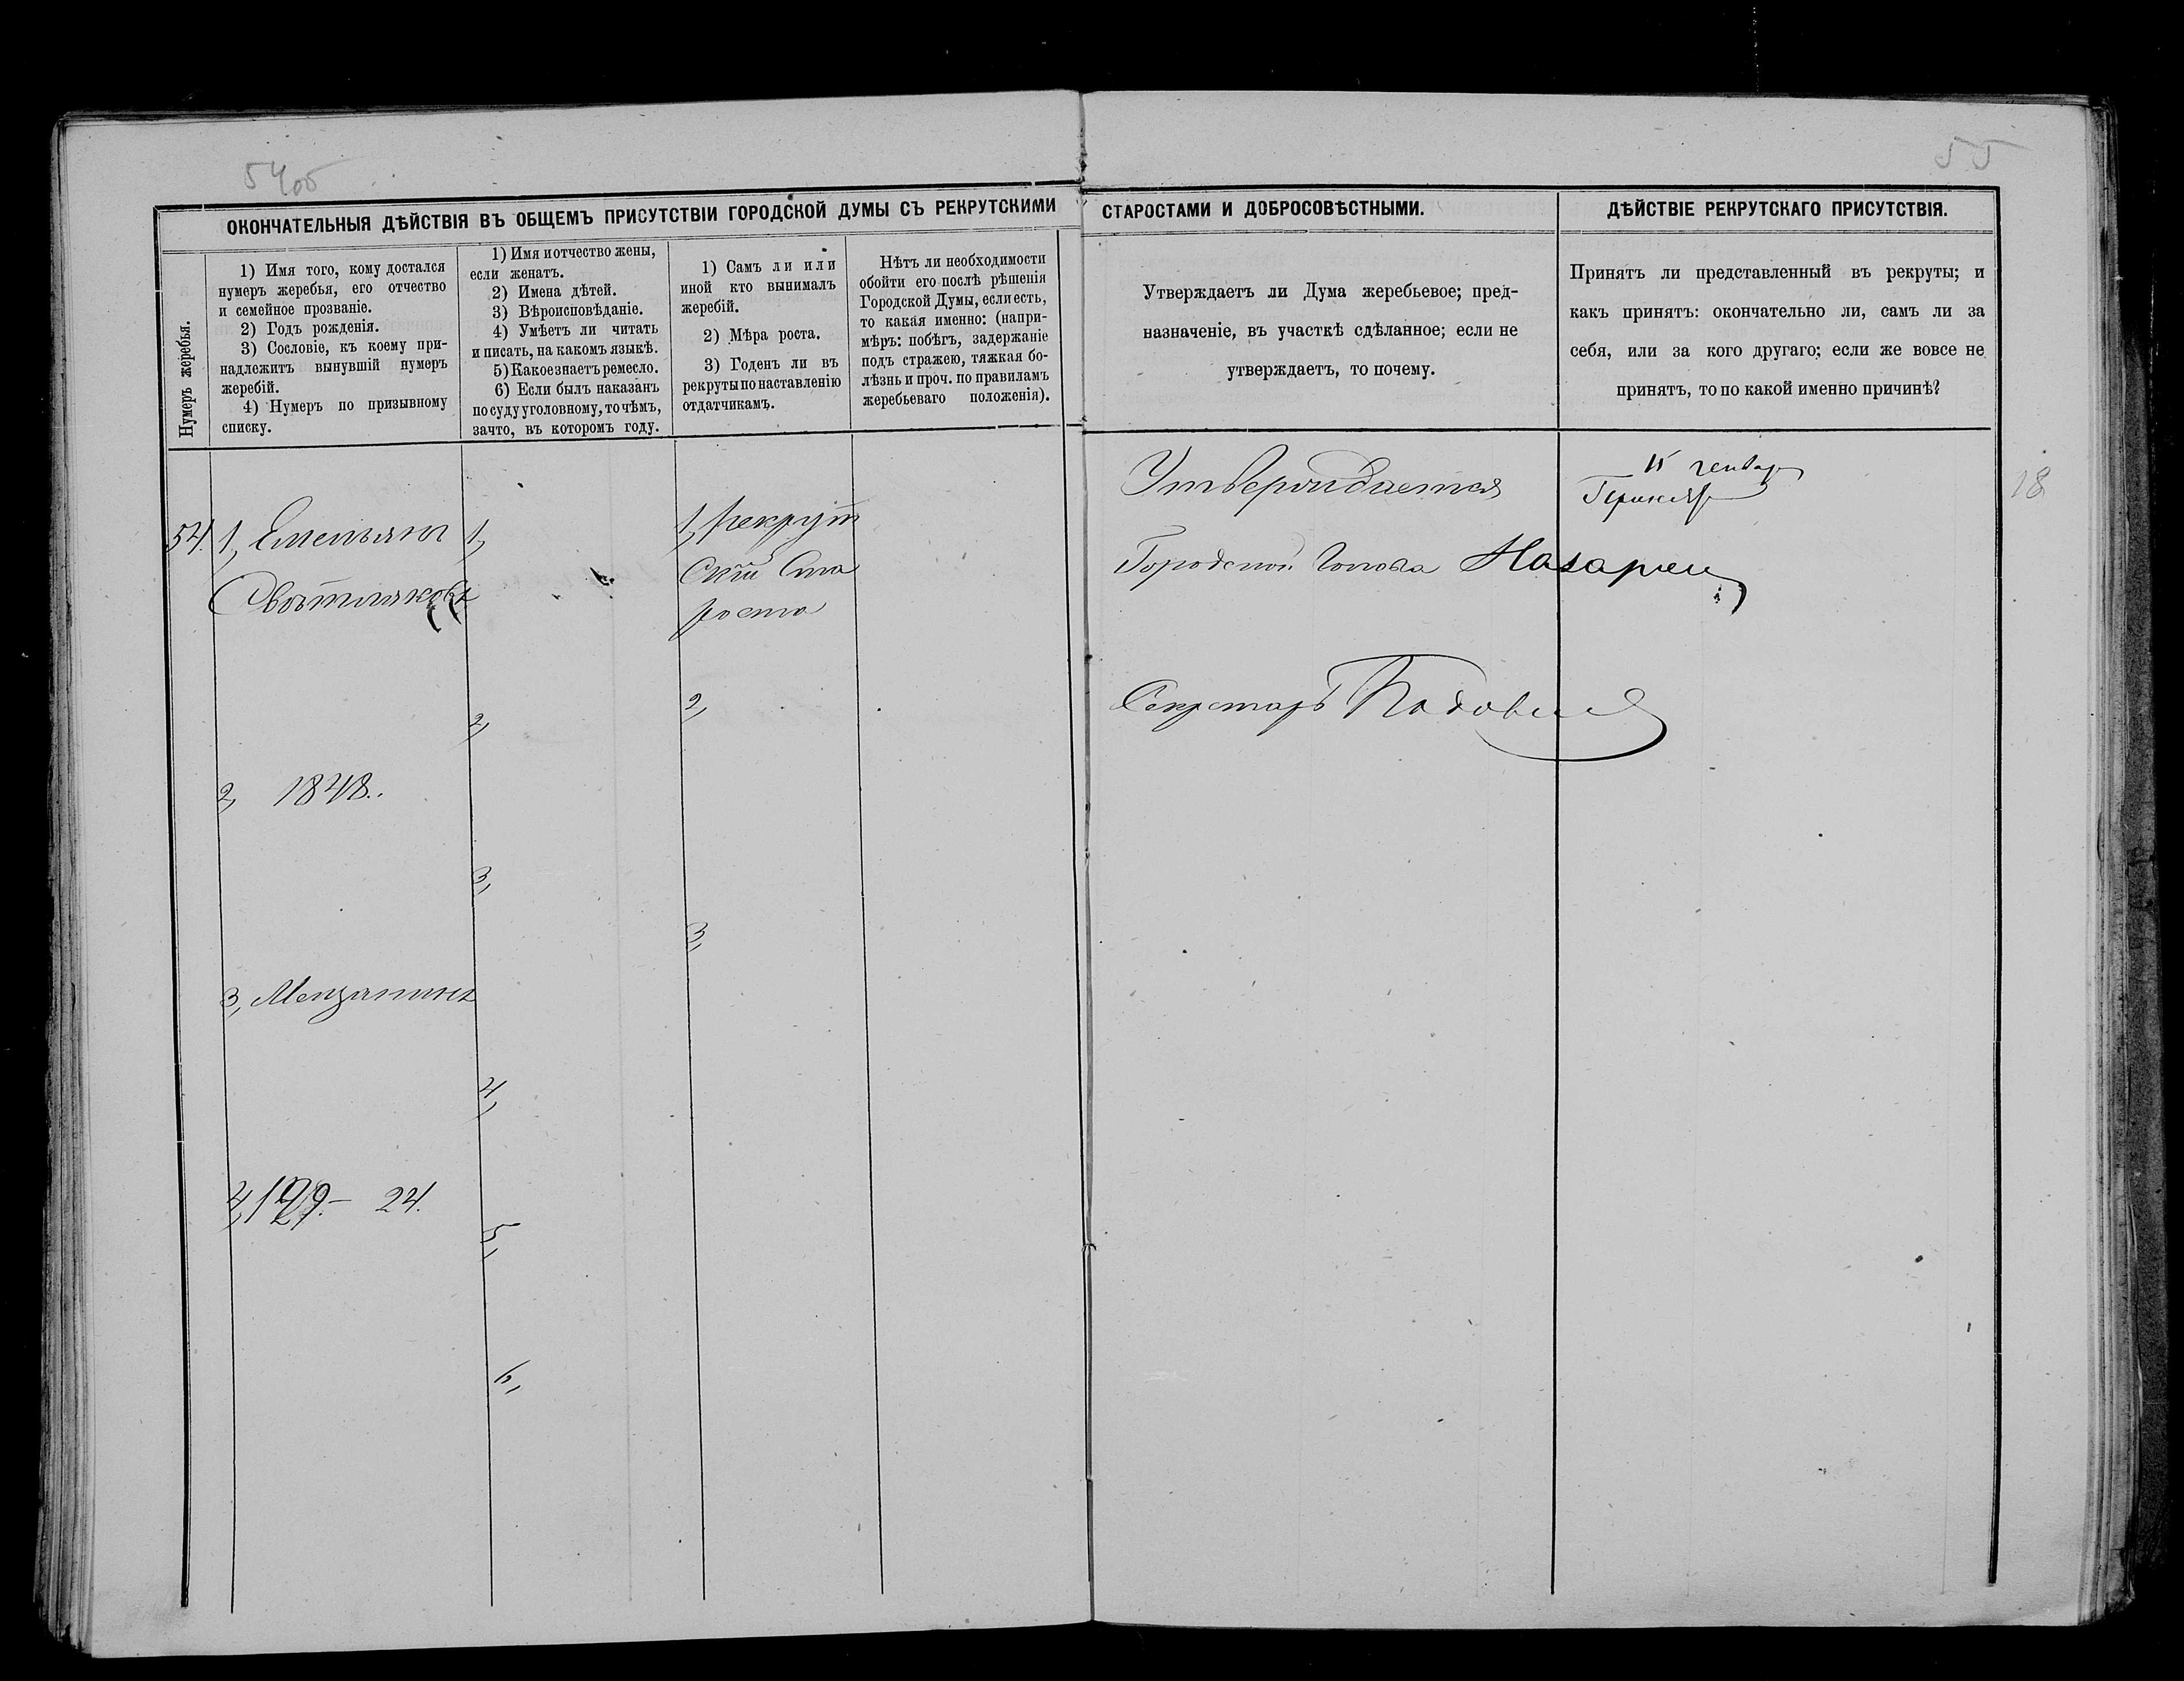 54об
55
ОКОНЧАТЕЛЬНЫЯ ДѢЙСТВІЯ ВЪ ОБЩЕМЪ ПРИСУТСТВІИ ГОРОДСКОЙ ДУМЫ СЪ РЕКРУТСКИМИ
СТАРОСТАМИ И ДОБРОСОВѢСТНЫМИ.
ДѢЙСТВІЕ РЕКРУТСКАГО ПРИСУТСТВІЯ.
Нумеръ жеребья.
1) Имя того, кому достался
нумеръ жеребья, его отчество
и семейное прозваніе.
2) Годъ рожденія.
3) Сословіе, къ коему при-
надлежитъ вынувшій нумеръ
жеребій.
4) Нумеръ по призывному
списку.
1) Имя и отчество жены,
если женатъ.
2) Имена дѣтей.
3) Вѣроисповѣданіе.
4) Умѣетъ ли читать
и писать, на какомъ языкѣ.
5) Какое знаетъ ремесло.
6) Если былъ наказанъ
по суду уголовному, то чѣмъ,
за что, въ которомъ году.
1) Самъ ли или
иной кто вынималъ
жеребій.
2) Мѣра роста.
3) Годенъ ли въ
рекруты по наставленію
отдатчикамъ.
Нѣтъ ли необходимости
обойти его послѣ рѣшенія
Городской Думы, если есть,
то какая именно: (напри-
мѣръ: побѣгъ, задержаніе
подъ стражею, тяжкая бо-
лѣзнь и проч. по правиламъ
жеребьеваго положенія).
Утверждаетъ ли Дума жеребьевое; пред-
назначеніе, въ участкѣ сдѣланное; если не
утверждаетъ, то почему.
Принятъ ли представленный въ рекруты; и
какъ принятъ: окончательно ли, самъ ли за
себя, или за кого другаго; если же вовсе не
принятъ, то по какой именно причинѣ?
54.
1, Емельянъ
Свѣтляковъ
2, 1848.
3, Мещанинъ
4, 129.- 24.
1,
2,
3,
4,
5,
6,
1, рекрут
скій Ста
роста
2,
3,
Утверждается
Городской Голова Назаре
Секретарь
15 генваря
18